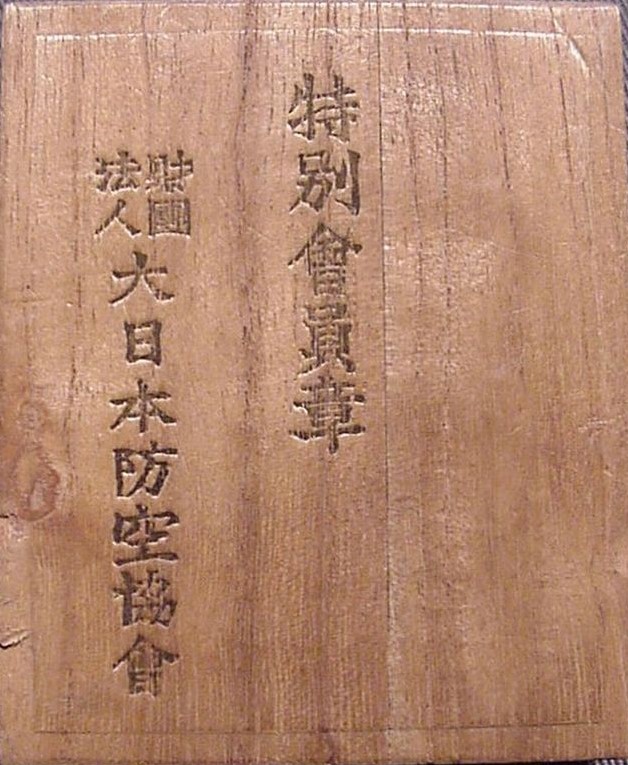 特別會員章
財團法人大日本防空協會